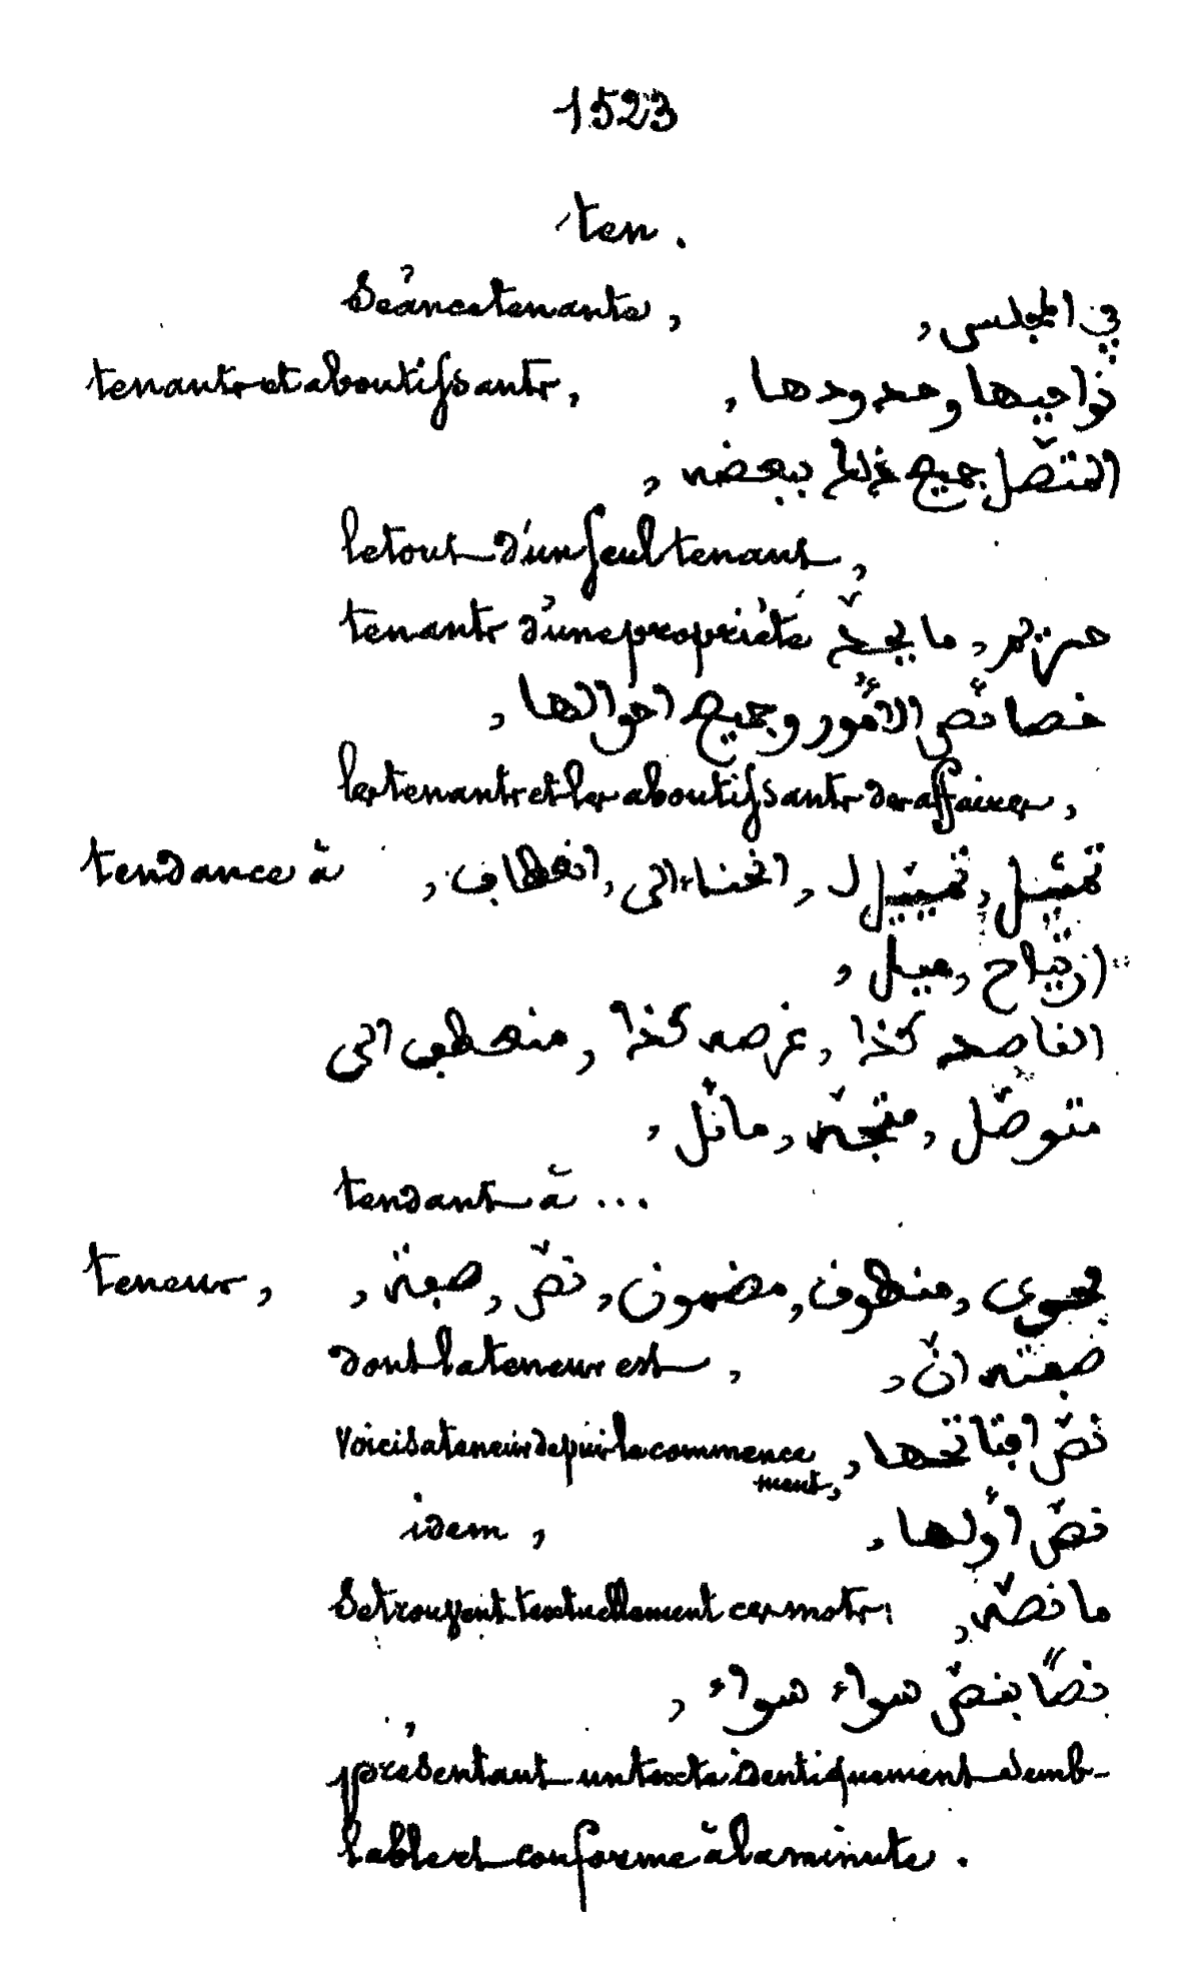 1523
ten.
Séance tenante, في المجلس,
tenants et aboutissants, نواحيها وحدودها,
المتصّل جميع ببعضه,
le tout d'un seul tenant,
tenants d'une propriété ما يحدّ,
خصائص الأمور وجميع احوالها,
les tenants et les aboutissants des affaires,
tendance à تمثيل, تمييل ل, انحناء الى, انعطاف,
ارتياح, ميل,
القاصد كذا, غرضه كذا, منعطف الى
متوصّل, متجّه, مائل,
tendant à ...
teneur, فحوى, منطوق, مضمون, نصّ, صيغة,
dont la teneur est, صيغته انّ,
Voici sa teneur depuis le commencement, نصّ افتتاحها,
idem, نصّ اوّلها,
Se trouvent textuellement ces mots: ما نصّه,
نصّاً بنصّ سواء سواء,
présentant un texte identiquement semb-
lable et conforme à la minute.